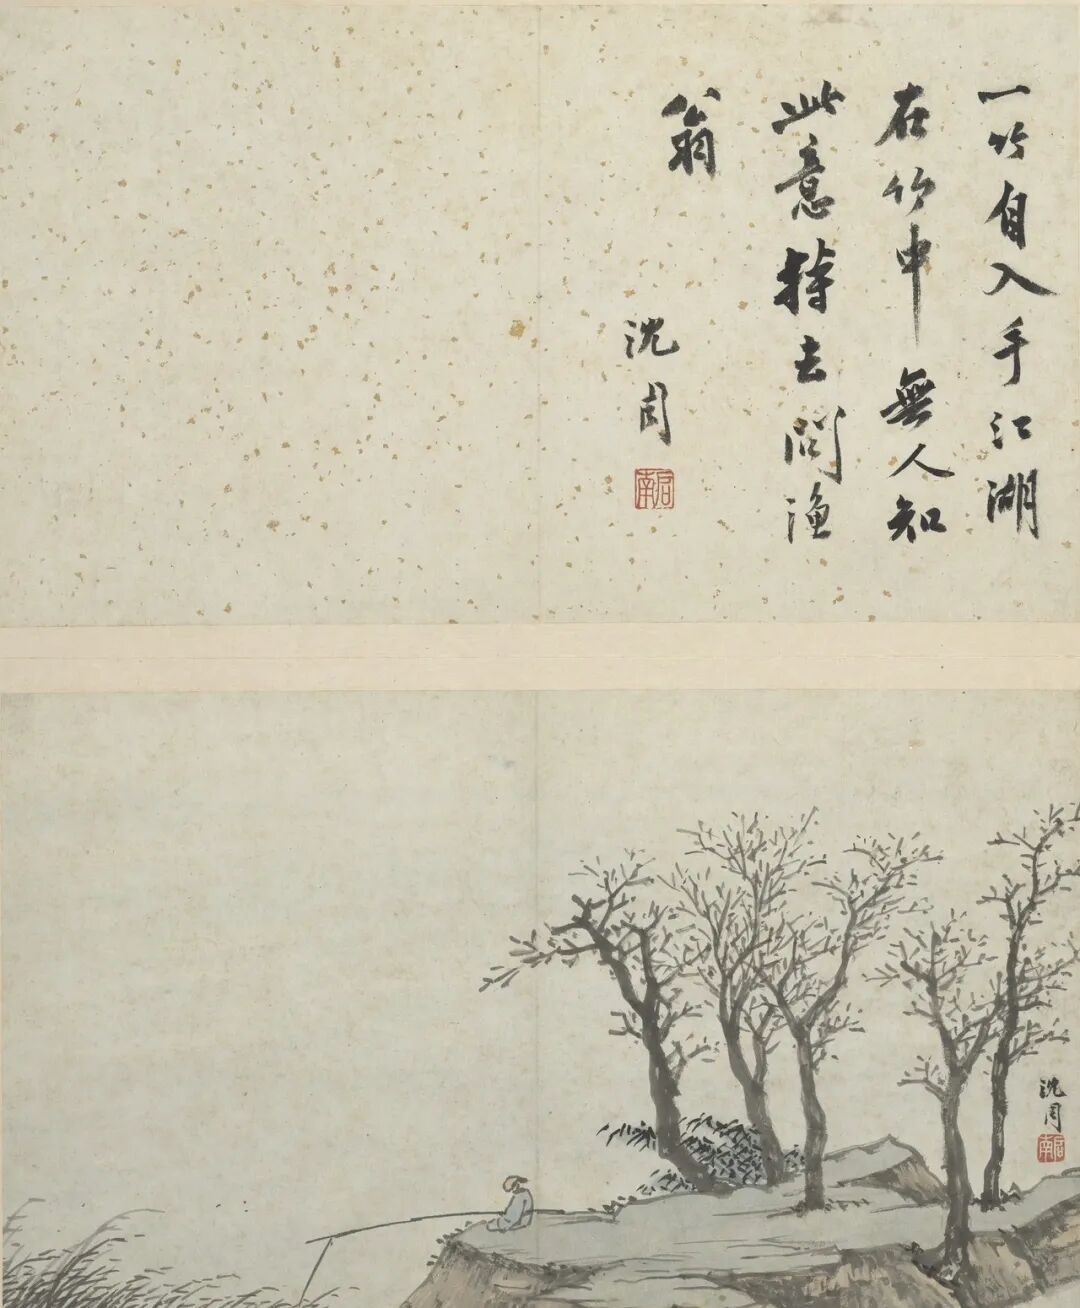 一竹自入手江湖
在竹中無人知
此意持去問漁
翁
沈周
啟南
沈周
啟南